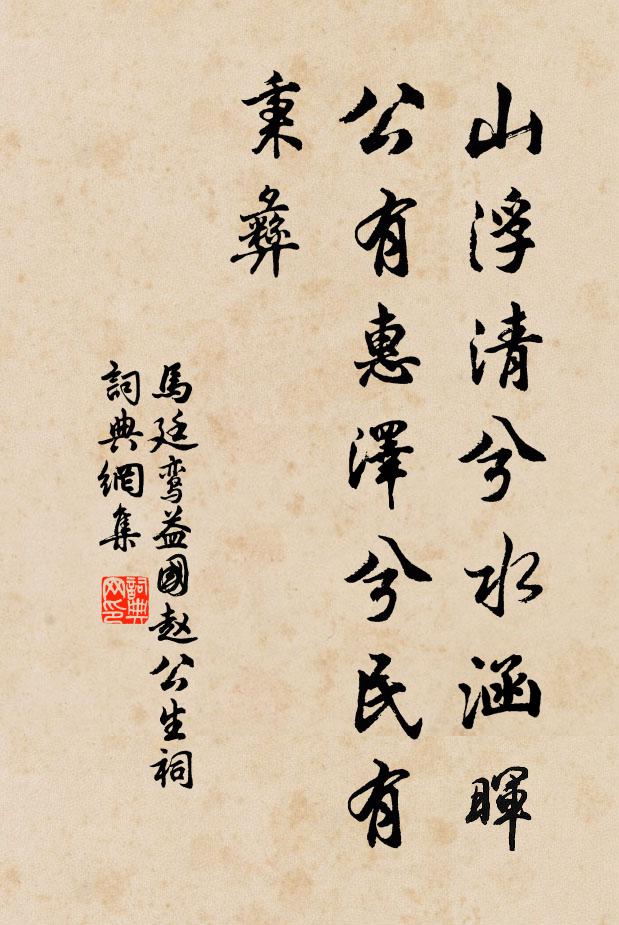 山浮清兮水涵暉
公有惠澤兮民有
秉彝
馬廷鸾益國赵公生祠
詞典網集
詞典網印